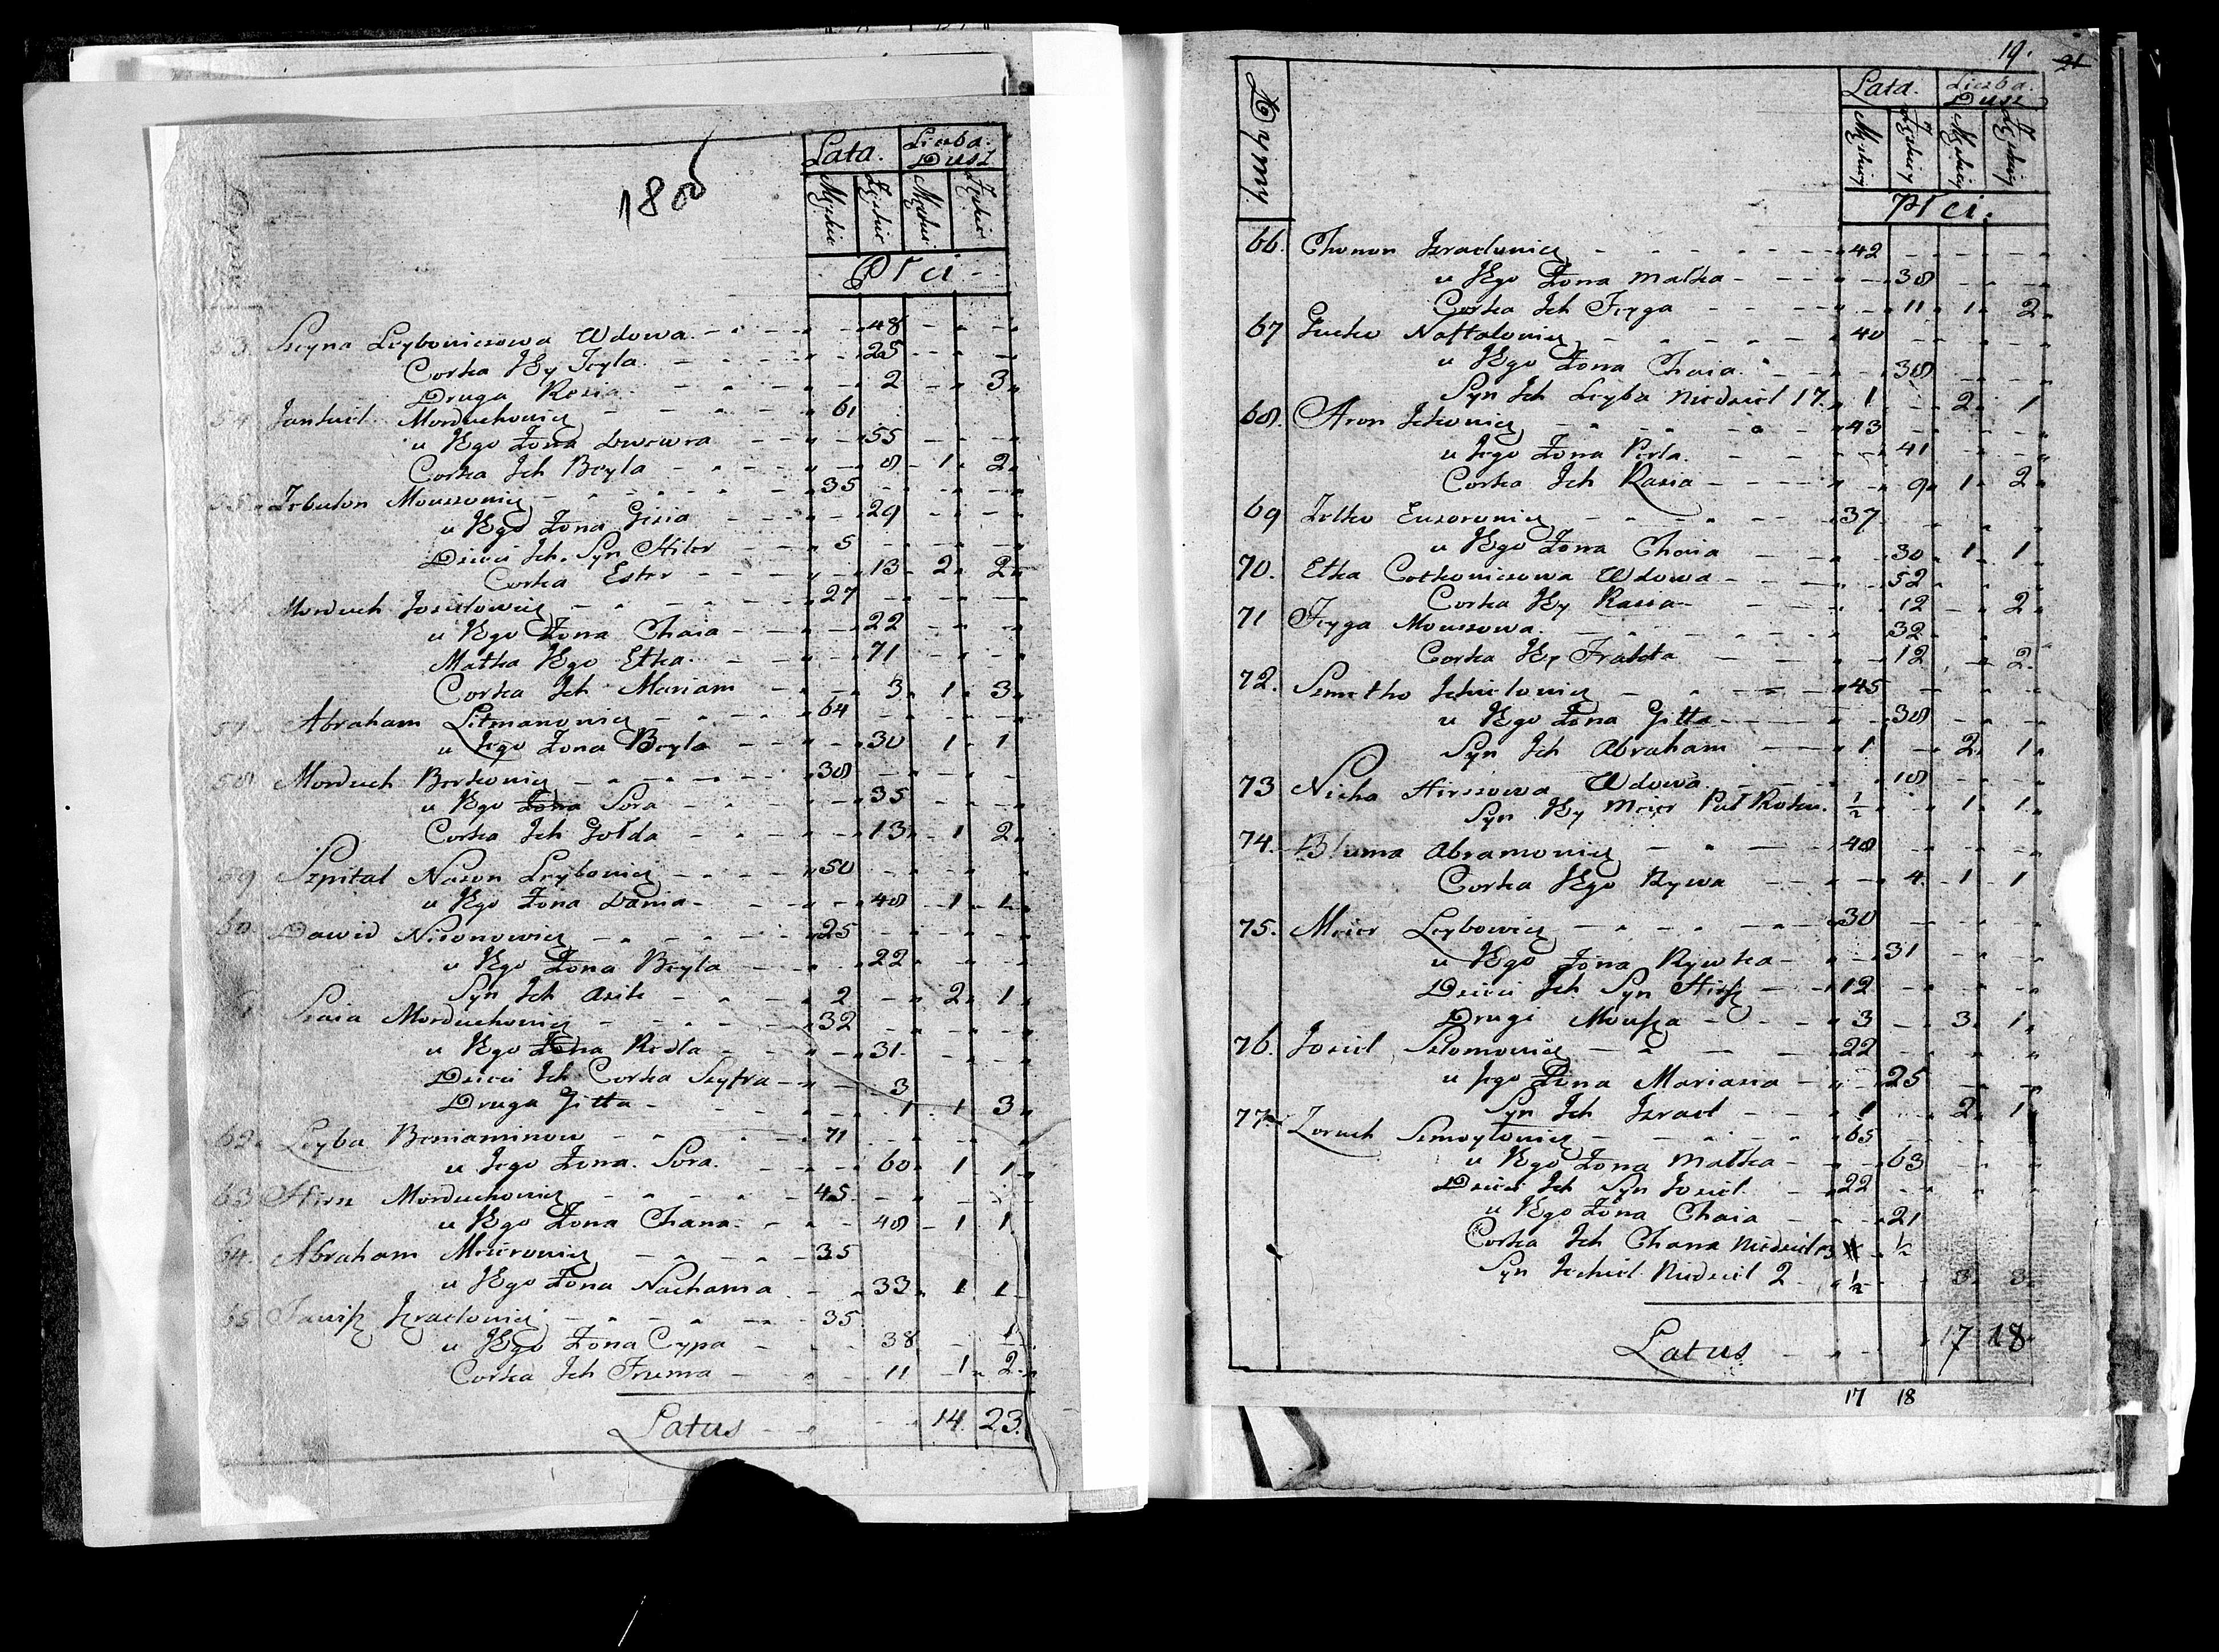 1806
Lata. Liczba Dusz
Męzkiey Żeńskiey Męzkiey Żeńskiey
Płci
53. Szeyna Leybowiczowa Wdowa - 48
Corka Jey Teyla - 25
Druga Rosia - 2 - 3
54 Jankiel Morduchowicz - 61
u Jego Żona Dwowra - 55
Corka Ich Beyla - 8 - 1 - 2
55. Zebulon Mouszowicz - 35
u Jego Żona Gisia - 29
Dzieci Ich Syn Hiler - 5
Corka Ester - 13 - 2 - 2
Morduch Josielowicz - 27
u Jego Żona Chaia - 22
Matka Jego Etka - 71
Corka Ich Mariam - 3 - 1 - 3
57 Abraham Litmanowicz - 64
u Jego Żona Beyla - 30 - 1 - 1
58 Morduch Berkowicz - 38
u Jego Żona Sora - 35
Corka Ich Gołda - 13 - 1 - 2
59 Szpital Noson Leybowicz - 50
u Jego Żona Dania - 48 - 1 - 1
60 Dawid Nisonowicz - 25
u Jego Żona Beyla - 22
Syn Ich Osik - 2 - 2 - 1
Szaia Morduchowicz - 32
u Jego Żona Rodla - 31
Dzieci Ich Corka Szeyfra - 3
Druga Gitta - 1 - 1 - 3
62. Leyba Beniaminow - 71
u Jego Żona Sora - 60 - 1 - 1
63 Hirsz Morduchowicz - 45
u Jego Żona Chana - 48 - 1 - 1
64. Abraham Meierowicz - 35
u Jego Żona Nachama - 33 - 1 - 1
65 Izraelowicz - 35
u Jego Żona Cypa - 38 - 1
Corka Ich Fruma - 11 - 1 - 2
Latus - 14. 23.
19. 21
Dymy.
Lata. Liczba Dusz
Męzkiey Żeńskiey Męzkiey Żeńskiey
Płci.
66. Chonon Izraelowicz - 42
u Jego Żona Malka - 38
Corka Ich Feyga - 11 - 1 - 2
67 Naftalowicz - 40
u Jego Żona Chaia - 38
Syn Ich Leyba Niedziel 17. - 1 - 2 - 1
68. Aron Ickowicz - 43
u Jego Żona Perla - 41
Corka Ich Rasia - 9 - 1 - 2
69 Zelko - 37
u Jego Żona Chaia - 30 - 1 - 1
70. Etka Cotkowiczowa Wdowa - 52
Corka Jey Rasia - 12 - 2
71 Feyga Mouszowa - 32
Corka Jey Fradla - 12 - 2
72. Szmerko Ichielowicz - 45
u Jego Żona Gitta - 38
Syn Ich Abraham - 1 - 2 - 1
73 Nicha Hirszowa Wdowa - 18
Syn Jey Meier Puł Roku. - ½ - 1 - 1
74. Bluma Abramowicz - 48
Corka Jego Rywa - 4 - 1 - 1
75. Meier Leybowicz - 30
u Jego Żona Rywka - 31
Dzieci Ich Syn Hirsz - 12
Drugi Mousza - 3 - 3 - 1
76. Josiel Szlomowicz - 22
u Jego Żona Mariasia - 25
Syn Ich Izrael - 1 - 2 - 1
77 Zoruch Szmoyłowicz - 65
u Jego Żona Malka - 63
Dzieci Ich Syn Josiel - 22
u Jego Żona Chaia - 21
Corka Ich Chana Niedziel 13 - ½
Syn Ichiel Niedziel 2 - ½ - 3 - 3
Latus - 17 18
17 18